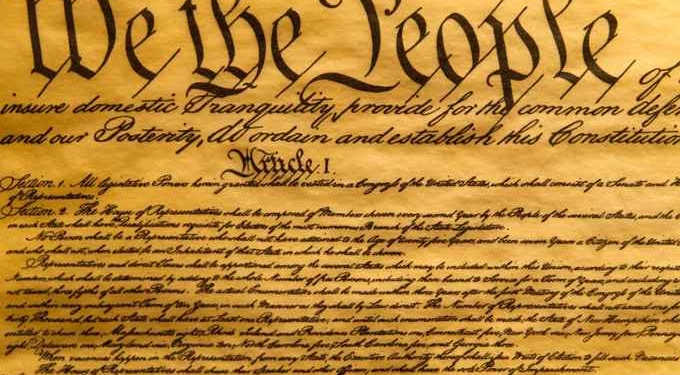 We the People of
insure domestic Tranquility, provide for the common defen
and our Posterity, do ordain and establish this Constitution
Article. I.
Section. 1. All legislative Powers herein granted shall be vested in a Congress of the United States, which shall consist of a Senate and H
of Representatives.
Section. 2. The House of Representatives shall be composed of Members chosen every second Year by the People of the several States, and the
in each State shall have the Qualifications requisite for Electors of the most numerous Branch of the State Legislature.
No Person shall be a Representative who shall not have attained to the Age of twenty five Years, and been seven Years a Citizen of the United
and who shall not, when elected, be an Inhabitant of that State in which he shall be chosen.
Representatives and direct Taxes shall be apportioned among the several States which may be included within this Union, according to their respect
which shall be determined by adding to the whole Number of free Persons, including those bound to Service for a Term of Years, and excluding
not taxed, three fifths of all other Persons. The actual Enumeration shall be made within three Years after the first Meeting of the Congress of the United
and within every subsequent Term of ten Years, in such Manner as they shall by Law direct. The Number of Representatives shall not exceed one for
thirty Thousand, but each State shall have at Least one Representative; and until such enumeration shall be made, the State of New Hampshire shall
entitled to chuse three, Massachusetts eight, Rhode-Island and Providence Plantations one, Connecticut five, New-York six, New Jersey four, Pennsy
eight, Delaware one, Maryland six, Virginia ten, North Carolina five, South Carolina five, and Georgia three.
When vacancies happen in the Representation from any State, the Executive Authority thereof shall issue Writs of Election to fill such Vacancies.
The House of Representatives shall chuse their Speaker and other Officers; and shall have the sole Power of Impeachment.